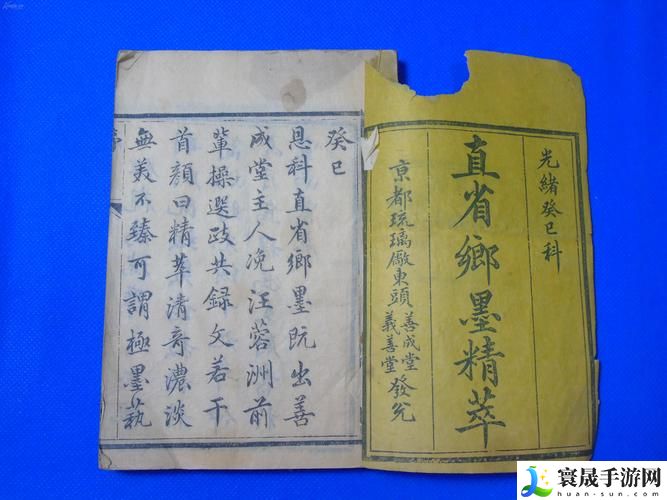 光緒癸巳科
直省鄉墨精萃
京都琉璃廠東頭善成堂義善堂發兌
癸巳
恩科直省鄉墨既出善
成堂主人浼汪蓉洲前
輩操選政共録文若干
首顔曰精萃清奇濃淡
無美不臻可謂極墨蓺
序
寰晟手游网